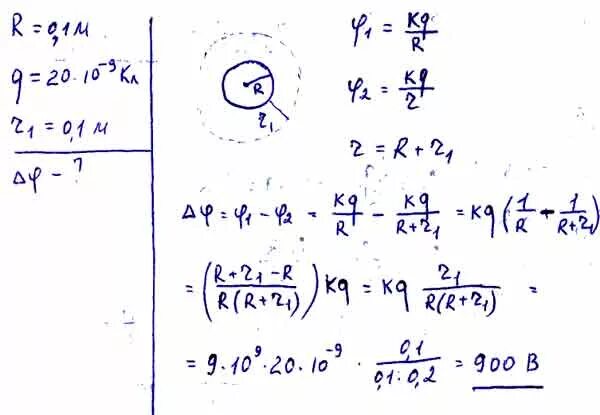 R = 0,1 м
q = 20·10⁻⁹ Кл
r₁ = 0,1 м
Δφ – ?
R
r₁
φ₁ = Kq/R
φ₂ = Kq/r
r = R + r₁
Δφ = φ₁ – φ₂ = Kq/R – Kq/(R+r₁) = Kq (1/R – 1/(R+r₁))
= ((R+r₁–R)/(R(R+r₁))) Kq = Kq r₁/(R(R+r₁)) =
= 9·10⁹·20·10⁻⁹ · 0,1/(0,1·0,2) = 900 В